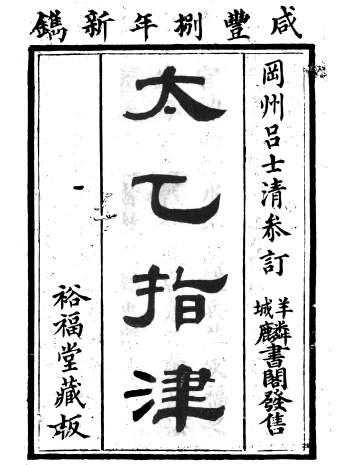 咸豐捌年新鐫
岡州呂士清叅訂
羊城麟書閣發售
太乙指津
裕福堂藏版